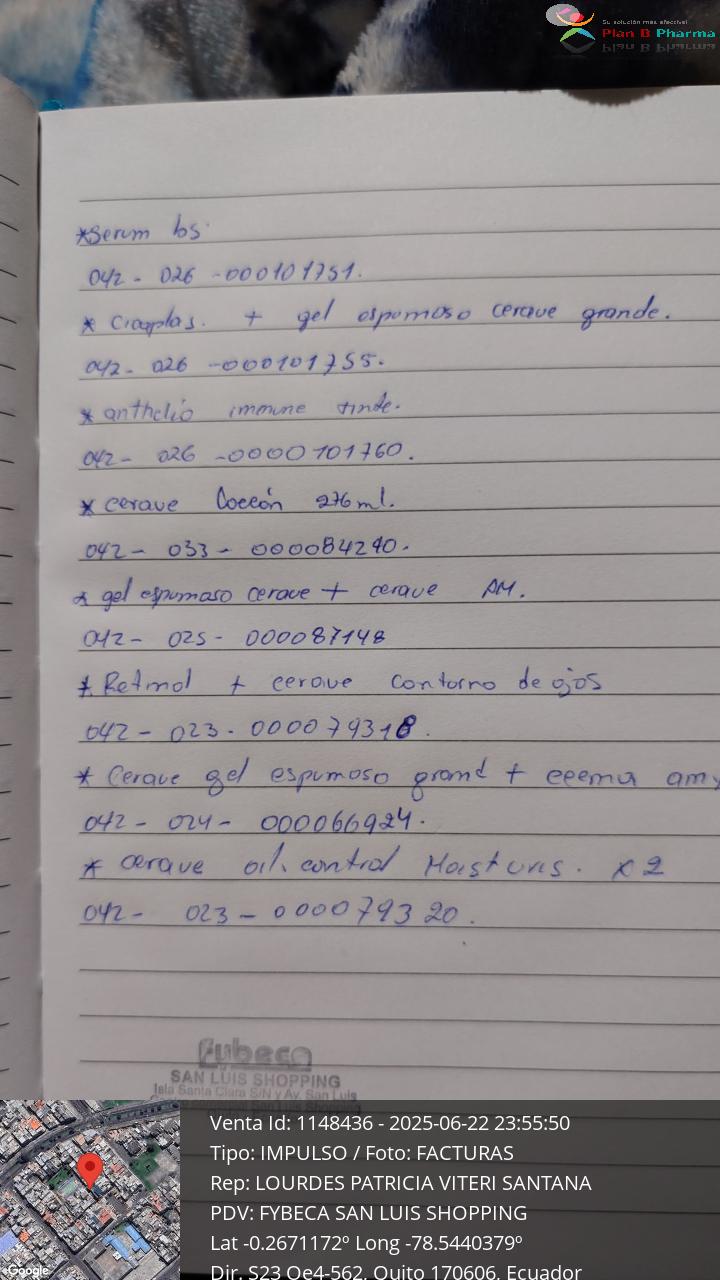 Su solución más efectiva!
Plan B Pharma
*Serum bs.
042 - 026 - 000101751.
* Cicaplas. + gel espumoso cerave grande.
042 - 026 - 000101755.
* anthelio immune tinde.
042 - 026 - 0000101760.
* cerave Loccón 276 ml.
042 - 033 - 000084290.
* gel espumaso cerave + cerave AM.
042 - 025 - 000087148
* Retinol + cerave contorno de ojos
042 - 023 - 000079318.
* Cerave gel espumoso grand + crema am
042 - 024 - 000066924.
* cerave oil. control Moisturis. x2
042 - 023 - 000079320.
fybeca
SAN LUIS SHOPPING
Isla Santa Clara S/N y Av. San Luis
San Luis Shopping
Venta Id: 1148436 - 2025-06-22 23:55:50
Tipo: IMPULSO / Foto: FACTURAS
Rep: LOURDES PATRICIA VITERI SANTANA
PDV: FYBECA SAN LUIS SHOPPING
Lat -0.2671172º Long -78.5440379º
Dir. S23 Oe4-562, Quito 170606, Ecuador
Google